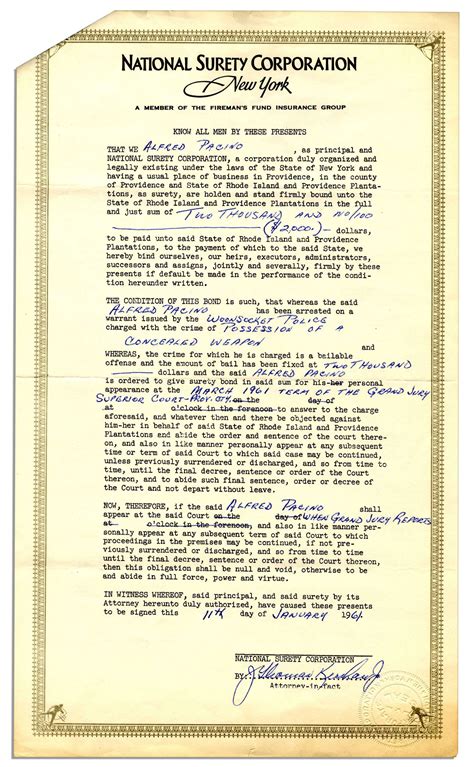 NATIONAL SURETY CORPORATION
New York
A MEMBER OF THE FIREMAN'S FUND INSURANCE GROUP
KNOW ALL MEN BY THESE PRESENTS
THAT WE ALFRED PACINO , as principal and
NATIONAL SURETY CORPORATION, a corporation duly organized and
legally existing under the laws of the State of New York and
having a usual place of business in Providence, in the county
of Providence and State of Rhode Island and Providence Planta-
tions, as surety, are holden and stand firmly bound unto the
State of Rhode Island and Providence Plantations in the full
and just sum of TWO THOUSAND AND NO/100
($2,000.) dollars,
to be paid unto said State of Rhode Island and Providence
Plantations, to the payment of which to the said State, we
hereby bind ourselves, our heirs, executors, administrators,
successors and assigns, jointly and severally, firmly by these
presents if default be made in the performance of the condi-
tion hereunder written.
THE CONDITION OF THIS BOND is such, that whereas the said
ALFRED PACINO has been arrested on a
warrant issued by the WOONSOCKET POLICE
charged with the crime of POSSESSION OF A
CONCEALED WEAPON and
WHEREAS, the crime for which he is charged is a bailable
offense and the amount of bail has been fixed at TWO THOUSAND
dollars and the said ALFRED PACINO
is ordered to give surety bond in said sum for his-her personal
appearance at the MARCH 1961 TERM OF THE GRAND JURY
SUPERIOR COURT-PROV. CTY. on the day of
at o'clock in the forenoon to answer to the charge
aforesaid, and whatever then and there be objected against
him-her in behalf of said State of Rhode Island and Providence
Plantations and abide the order and sentence of the court there-
on, and also in like manner personally appear at any subsequent
time or term of said Court to which said case may be continued,
unless previously surrendered or discharged, and so from time to
time, until the final decree, sentence or order of the Court
thereon, and to abide such final sentence, order or decree of
the Court and not depart without leave.
NOW, THEREFORE, if the said ALFRED PACINO shall
appear at the said Court on the day of WHEN GRAND JURY REPORTS
at o'clock in the forenoon, and also in like manner per-
sonally appear at any subsequent term of said Court to which
proceedings in the premises may be continued, if not pre-
viously surrendered or discharged, and so from time to time
until the final decree, sentence or order of the Court thereon,
then this obligation shall be null and void, otherwise to be
and abide in full force, power and virtue.
IN WITNESS WHEREOF, said principal, and said surety by its
Attorney hereunto duly authorized, have caused these presents
to be signed this 11th day of JANUARY 1961.
NATIONAL SURETY CORPORATION
BY:
Attorney-in-fact